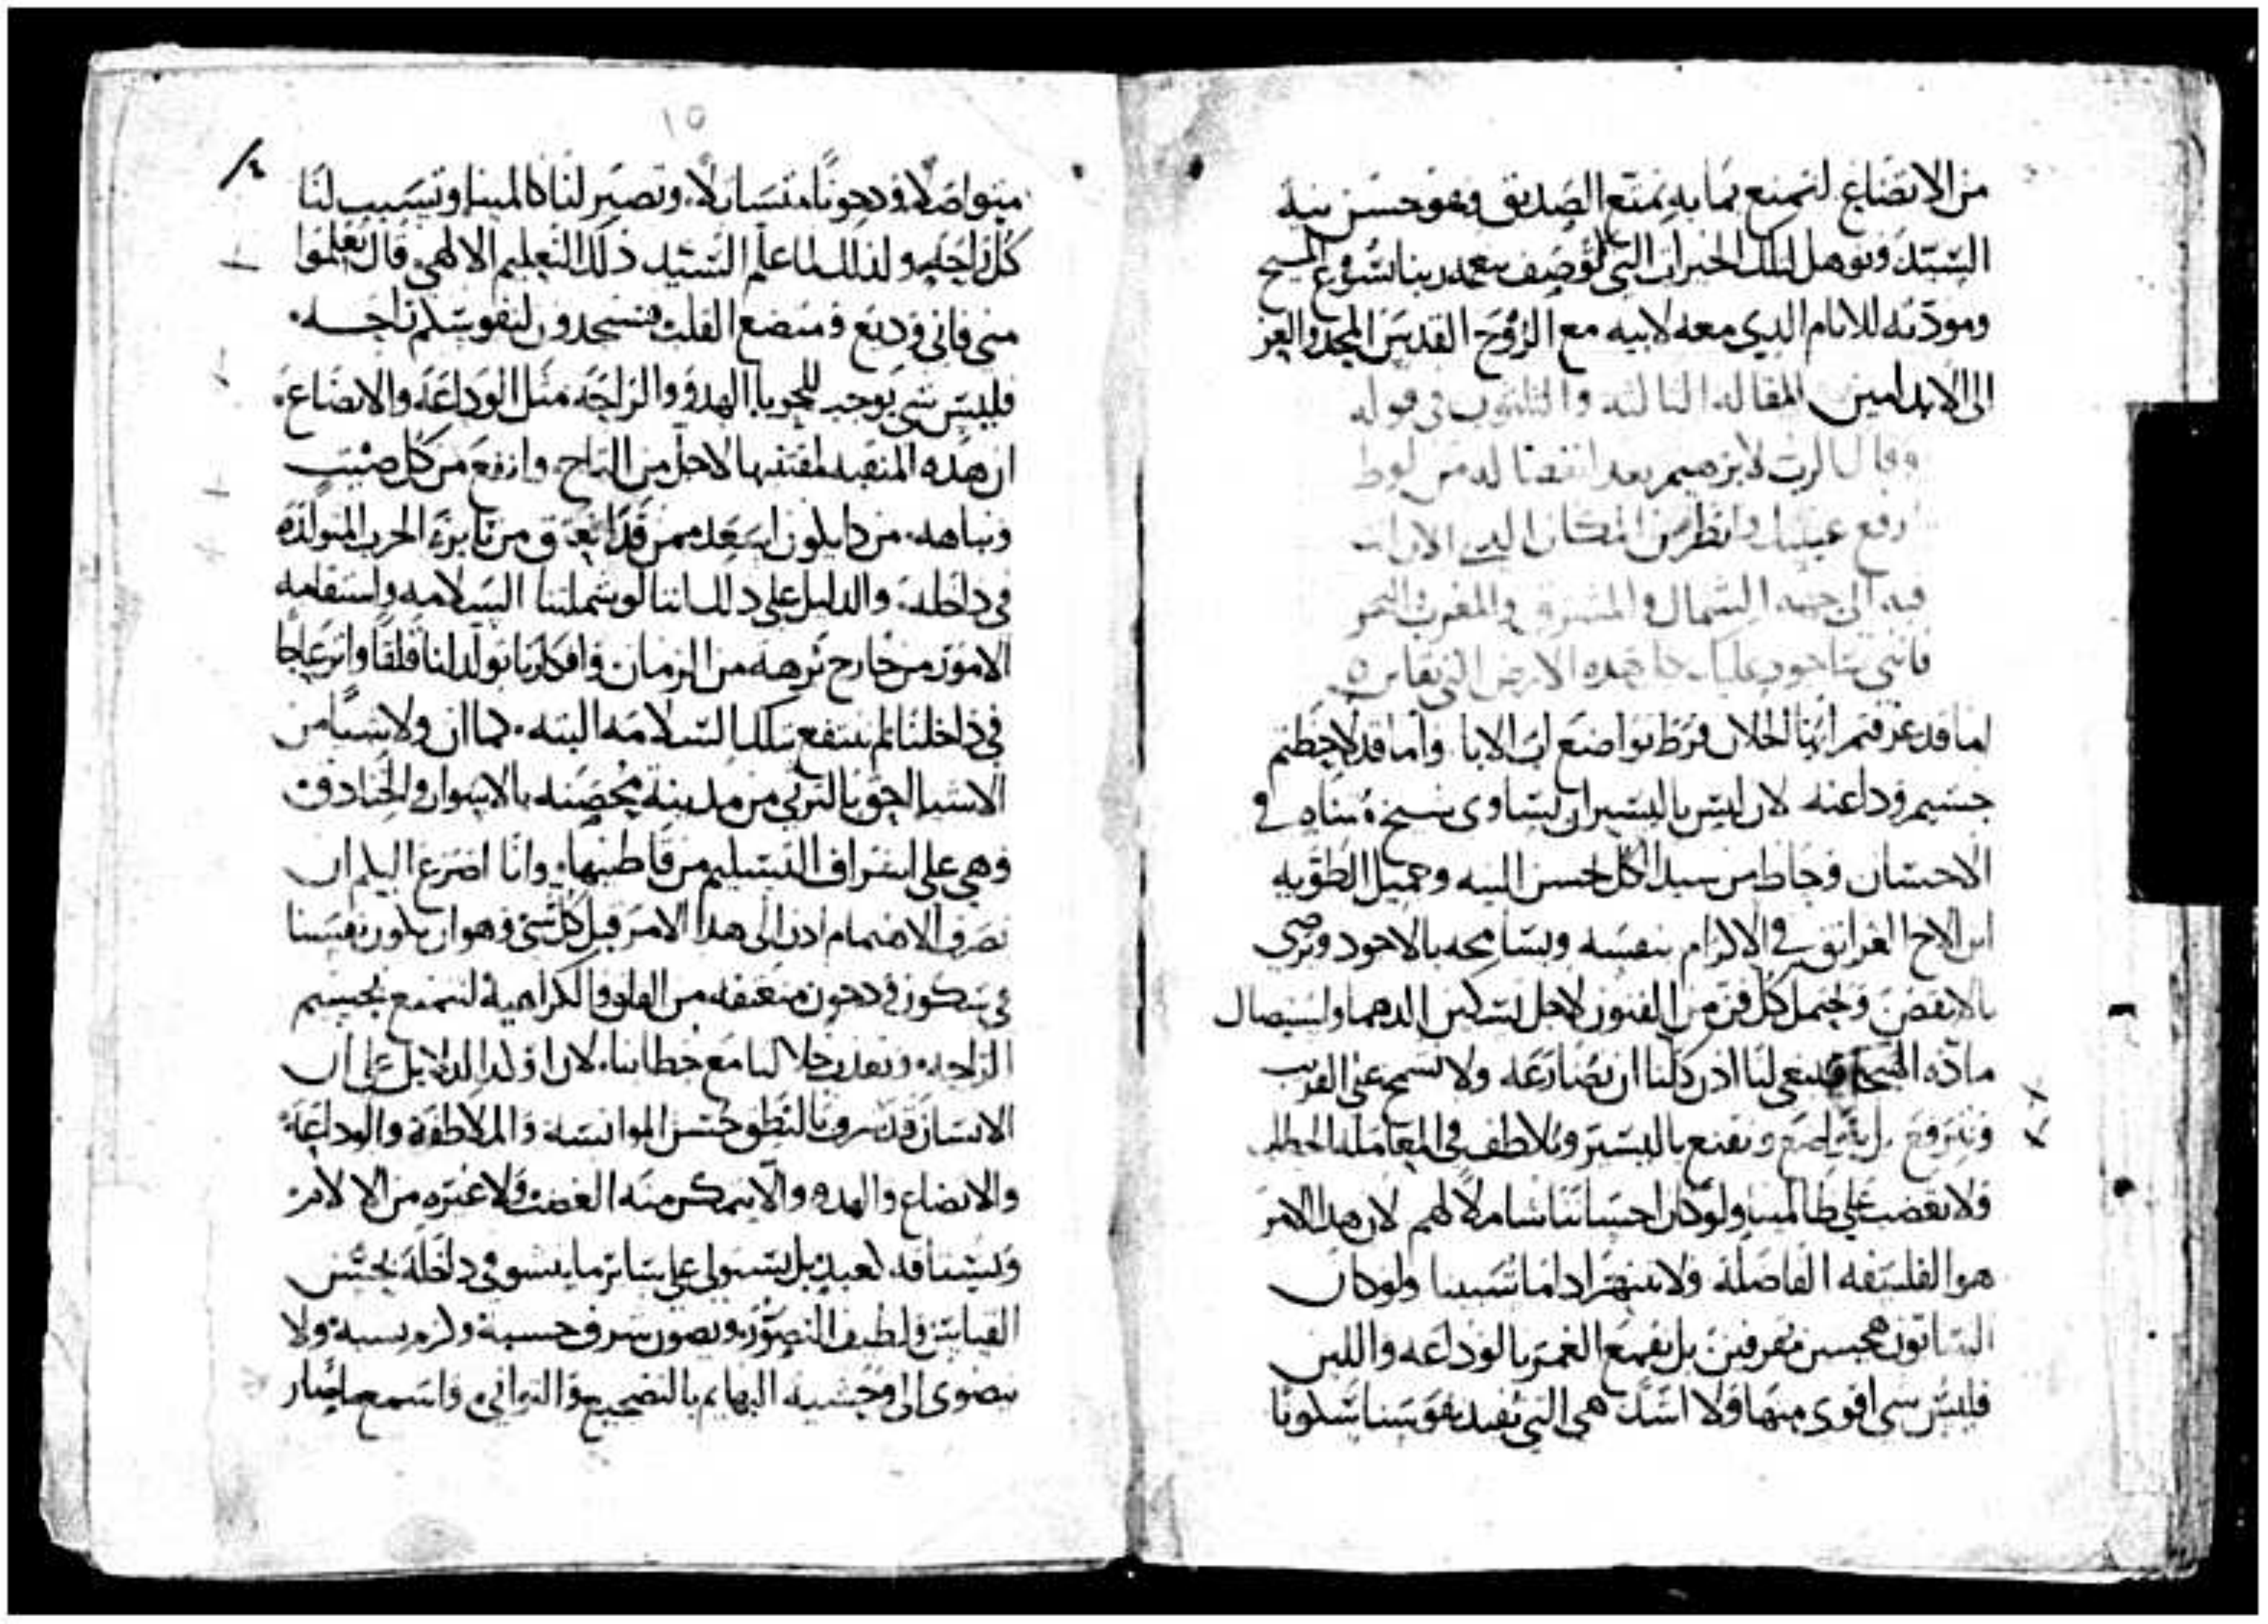 من الاتضاع لنتمتع بما به تمتع الصديق وهو حسن نية
السيد ونوهل لتلك الخيرات التي لا توصف بنعمة ربنا يشوع المسيح
ومودته للانام الدي معه لابيه مع الروح القدس المجد والعز
الى الابد امين المقاله الثالثه والثلثون في قوله
وقال الرب لابرهيم بعد انفصاله من لوط
ارفع عينيك وانظر من المكان الدي الان انت
فيه الى جهة الشمال والمشرق والمغرب والبحر
فانني ساجود عليك هده الارض التي تعاين
اما قد عرفتم ايها الخلان فرط تواضع اب الابا واما قد لاحظتم
جسيم وداعته لان ليس باليسير ان يساوي شيخ متناه في
الاحسان وحاط من سيد الكل لحسن النيه وجميل الطويه
ابن الاخ الغرانق في الاكرام بنفسه ويسامحه بالاجود ويرضى
بالانقص ويحتمل كل فن من الفنون لاجل تسكين الدهما واستيصال
مادة الشحنا فينبغي لنا ادن كلنا ان نضارعه ولا نشمخ على القريب
ونترفع بل نتضع ونقنع باليسير ونلاطف في المعامله الخطاب
ولا نغضب على ظالمينا ولو كان احساننا شاملا لهم لان هدا الامر
هو الفلسفه الفاضلة ولا ننتهر ادا ما شتمنا ولو كان
الشاتمون محسن مقرفين بل نقمع الغمر بالوداعه واللين
فليس شي اقوى منها ولا اشد هي التي تفيد نفوسنا سكونا
١٥
متواصلا وهدوءا متسارلا وتصير لنا كالمينا وتسبب لنا
كل راحة ولدلك لما علم السيد دلك التعليم الالهي قال تعلموا
مني فاني وديع ومتضع القلب فستجدون لنفوسكم راحه
فليس شي يوجد للحوبا الهدو والراحه مثل الوداعه والاتضاع
ان هده المنقبه لمقتنيها لاجل من التاج وارفع من كل صيت
ونباهه من دا يكون اسعد ممن قد انعتق من نايرة الحرب المتولده
في داخله والدليل على دلك اننا لو شملتنا السلامه واستقامه
الامور من خارج برهه من الزمان وافكارنا تولد لنا قلقا وانزعاجا
في داخلنا لم ننتفع بتلك السلامه البته كما ان ولا شيا من
الاشيا احق بالترثي من مدينة محصنه بالاسوار والخنادق
وهي على استراف التسليم من قاطنيها وانا اضرع اليكم ان
نصرف الاهتمام ادن الى هدا الامر قبل كل شي وهو ان تكون نفسنا
في سكون وهدو منعتقه من القلق والكراهية لنتمتع بجسيم
الراحه ونغدو حلا لينا مع خطابنا لان اوكد الدلايل على ان
الانسان قد شرف بالنطق حسن الموانسه والملاطفة والوداعة
والاتضاع والهدو والا يتمكن منه الغضب ولا غيره من الالام
ويستاقه كعبد بل يستولي على ساير ما ينشو في داخله بحسن
القياس ولطيف التصور ويصون شرف حسبه وكرم نسبه ولا
ينضوي الى وحشية البهايم بالتضجيع والتواني واسمع ما صار